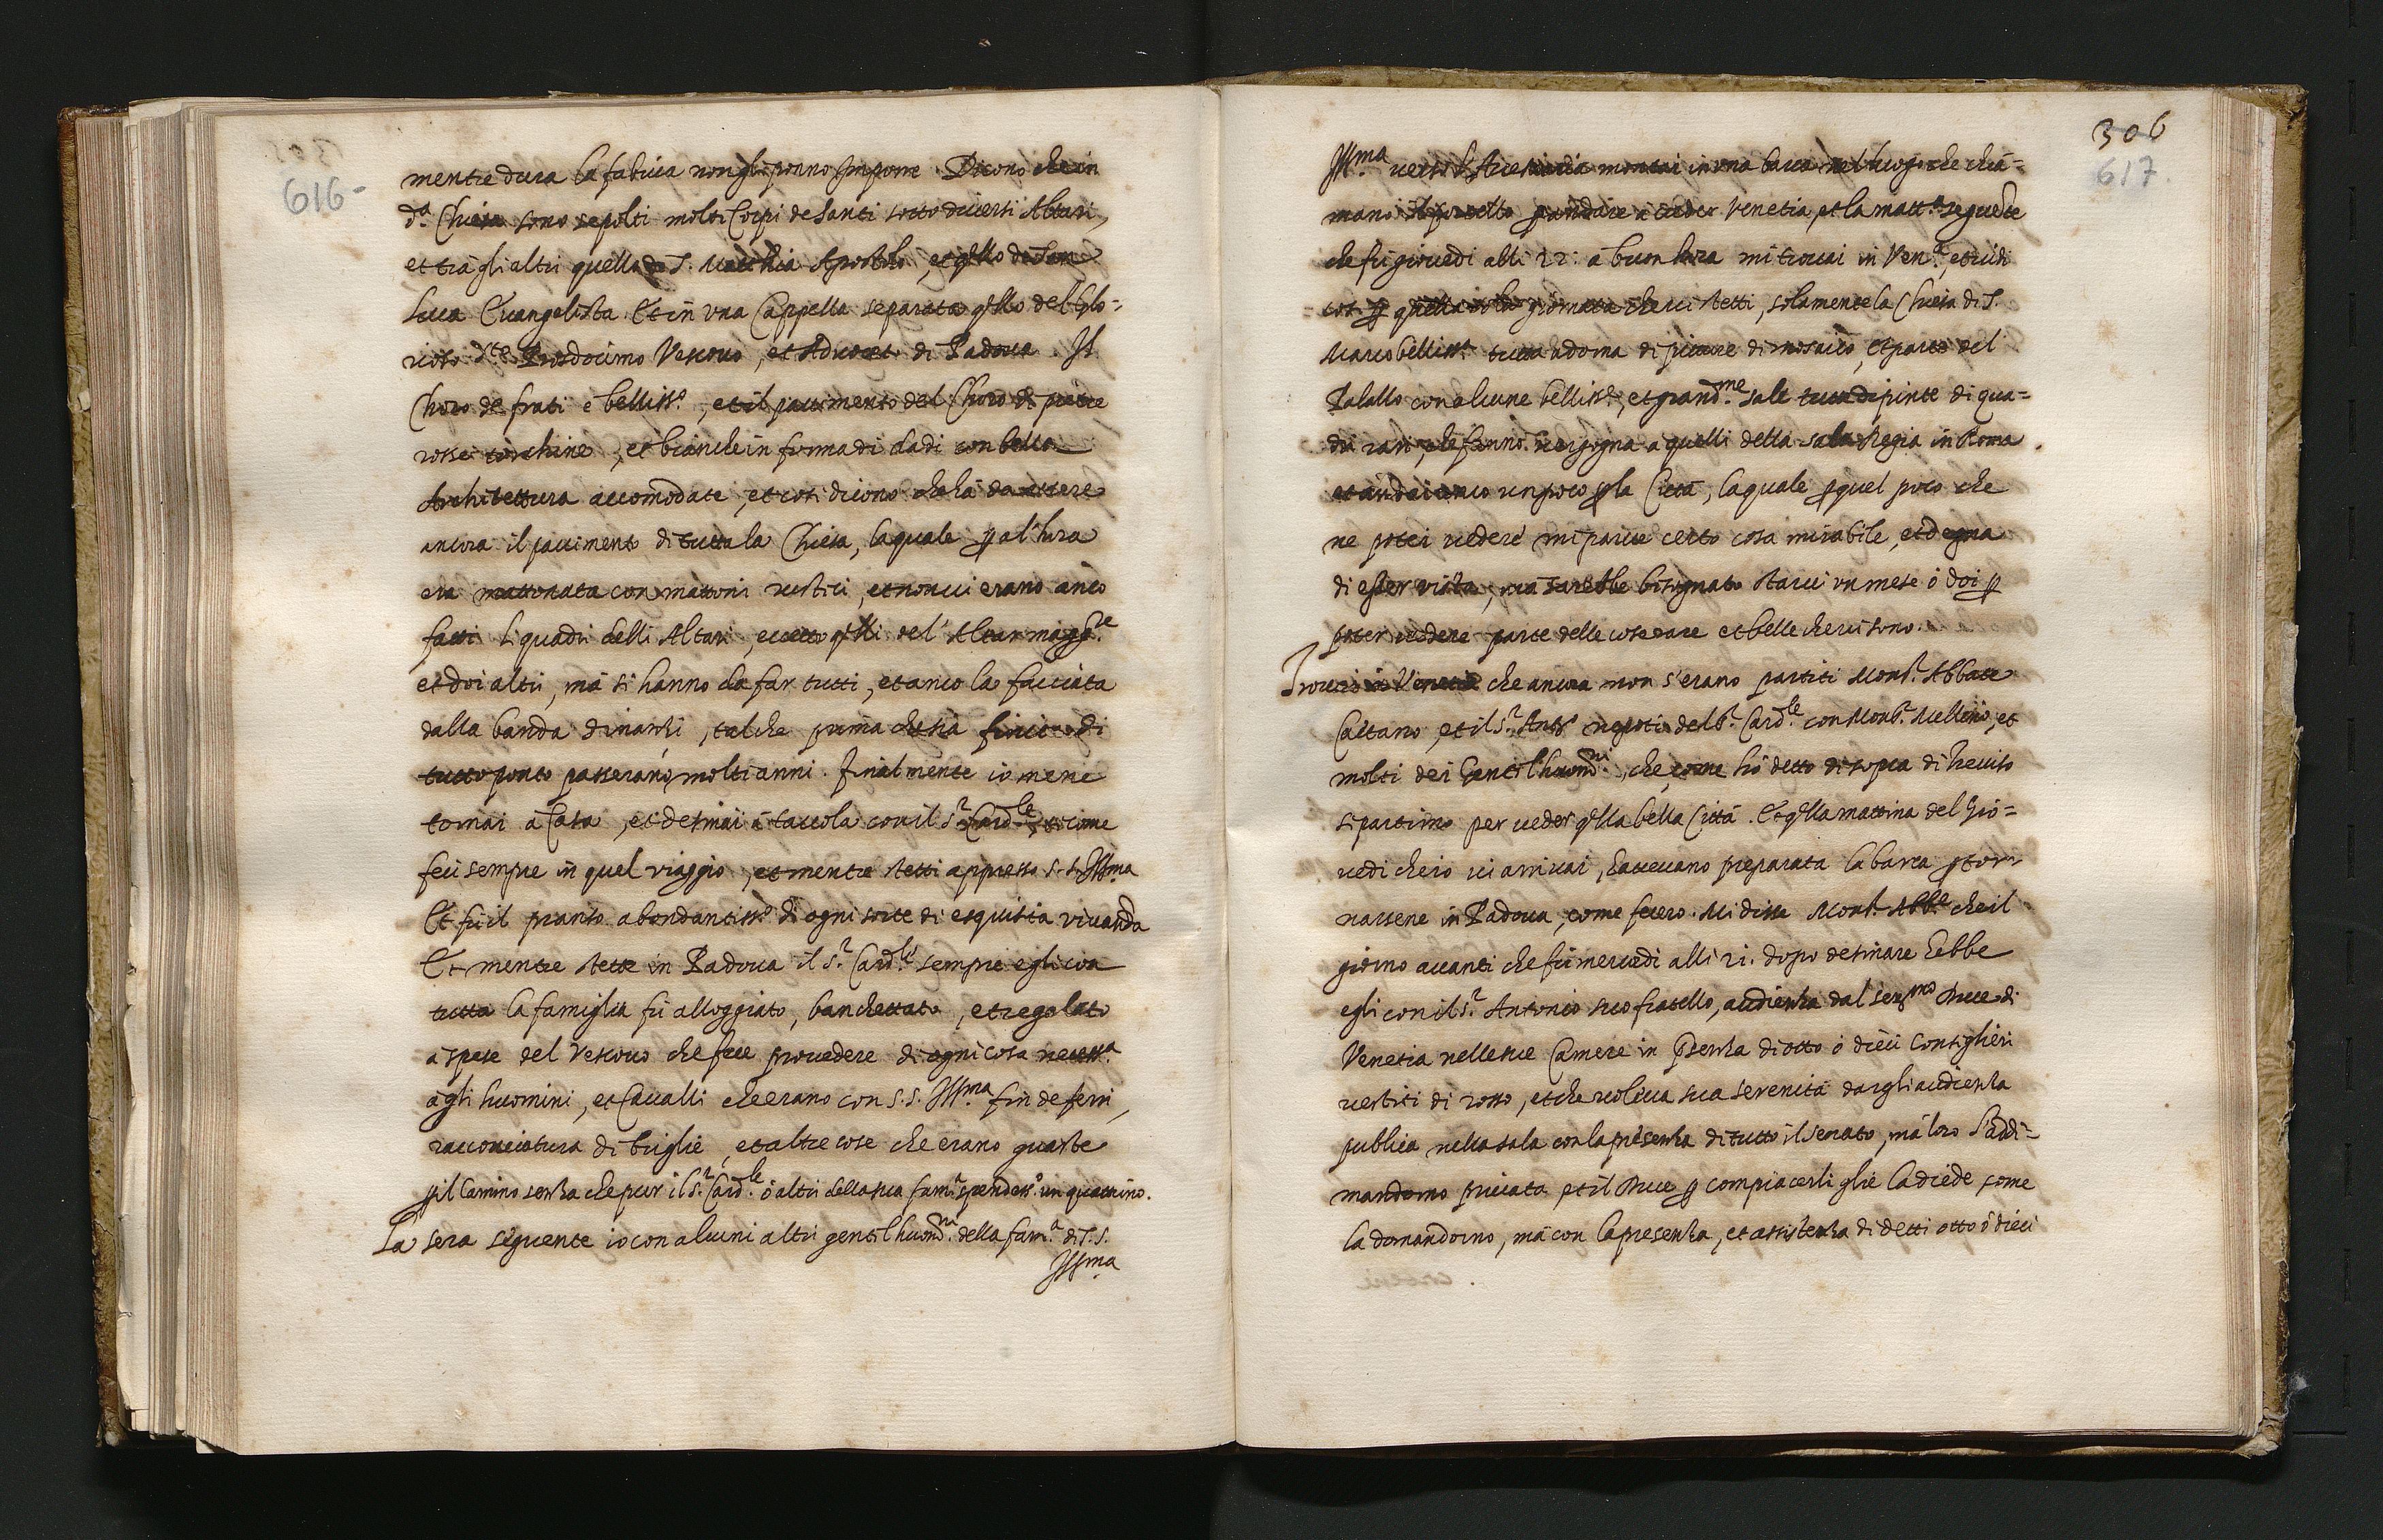 616-
mentre dura la fabrica non gli ponno Imporre. Dicono che in
d.ª Chiesa sono sepolti molti Corpi de Santi sotto diuersi Altari,
et trà gli altri quello di S. Matthia Apostolo, et qllo di San
Luca Euangelista. Et in vna Cappella separata qllo del Glo=
rioso S.to Prosdocimo Vescouo, et Aduocato di Padoua. Il
Choro de frati è belliss.º, et il pauimento del Choro di pietre
rosse torchine, et bianche in forma di dadi con bella
Architettura accomodate, et così dicono che hà da essere
ancora il pauimento di tutta la Chiesa, la quale p al'hora
era mattonata con mattoni rustici, et non ui erano anco
fatti li quadri delli Altari, eccetto qlli del'Altar magg.re
et doi altri, mà si hanno da far tutti, et anco la facciata
dalla banda dinanzi, talche prima che sia finito di
tutto ponto passerano molti anni. Finalmente io mene
tornai à Casa, et desinai à tauola con il S.r Card.le, si come
feci sempre in quel viaggio, et mentre stetti appresso S. S. Ill.ma
Et fù il pranso abondantiss.º di ogni sorte di esquisita viuanda
Et mentre stette in Padoua il S.r Card.le sempre egli con
tutta la famiglia fù alloggiato, banchettato, et regalato
à spese del Vescouo che fece prouedere di ogni cosa necess.ª
àgli huomini, et Caualli che erano con S. S. Ill.ma fin de ferri,
racconciatura di briglie, et altre cose che erano guaste
p il Camino senza che pur il S.r Card.le ò altri della sua fam.ª spendess.º un quattrino.
La sera seguente io con alcuni altri gentilhuom.ni della fam.ª di S. S.
Ill.ma
306
617.
Ill.ma uerso l'Auemaria montai in vna barca nel luogo che chia=
mano il portello p andare à ueder Venetia, et la matt.ª seguẽte
che fù giouedi alli 22. à buon hora mi trouai in Ven.ª, et uidi
così p quella sola giornata che ui stetti, solamente la Chiesa di S.
Marco belliss.ª tutta adorna di pitture di mosaico, et parte del
Palazzo con alcune belliss.e, et grand.me sale tutte dipinte di qua=
dri rari, che fanno uergogna a quelli della sala Regia in Roma.
et andai anco un poco p la Città, la quale p quel poco che
ne potei uedere mi parue certo cosa mirabile, et degna
di esser vista, mà sarebbe bisognato starci vn mese ò doi p
poter uedere parte delle cose rare et belle che ui sono.
Trouai in Venetia che ancora non s'erano partiti Mons.r Abbate
Caetano, et il S.r Ant.º nepoti del S.r Card.le con Mons.r Mellino, et
molti dei Gentilhuom.ni, che, come hò detto di sopra di Treuiso
si partirno per ueder qlla bella Città. Et qlla mattina del Gio=
uedi che io ui arriuai, haueuano preparata la barca p tor
narsene in Padoua, come fecero. Mi disse Mons.r Abb.e che il
giorno auanti che fù mercordi alli 21. dopo desinare hebbe
egli con il S.r Antonio suo fratello, audienza dal Ser.mo Duce di
Venetia nelle sue Camere in pñsenza di otto ò dieci Consiglieri
uestiti di rosso, et che uoleua sua serenità dargli audienza
publica nella sala con la presenza di tutto il senato, mà loro l'addi=
mandorno priuata, et il Duce p compiacerli glie la diede, come
la domandorno, mà con la presenza, et assistenza di detti otto ò dieci